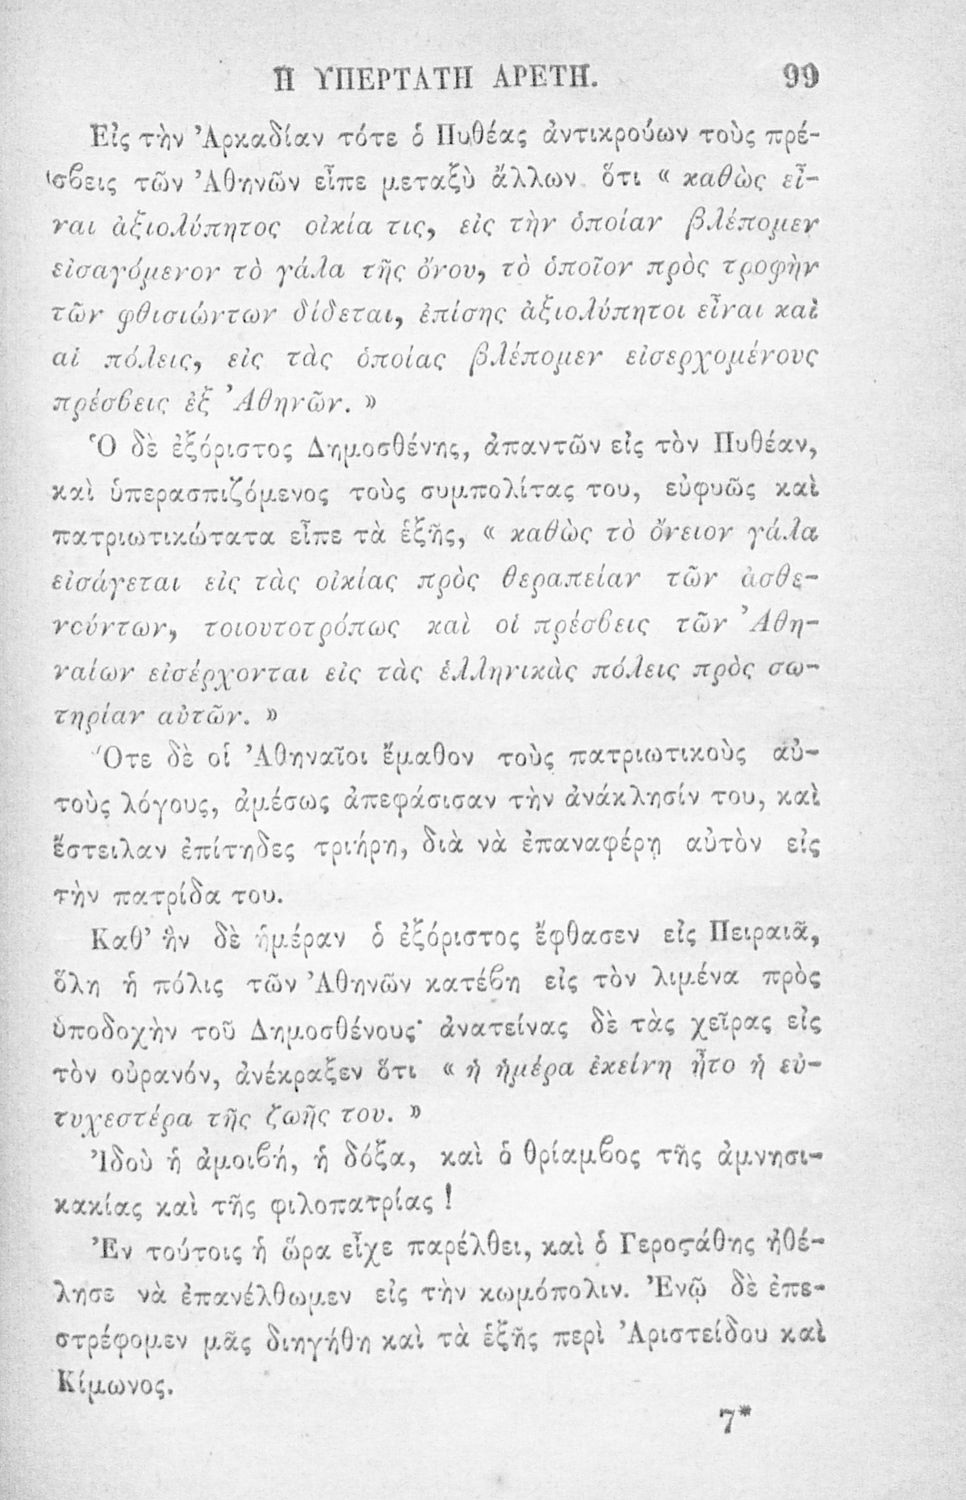 Η ΥΠΕΡΤΑΤΗ ΑΡΕΤΗ. 99
Εἰς τὴν Ἀρκαδίαν τότε ὁ Πυθέας ἀντικρούων τοὺς πρέ-
σβεις τῶν Ἀθηνῶν εἶπε μεταξὺ ἄλλων ὅτι « καθὼς εἶ-
ναι ἀξιολύπητος οἰκία τις, εἰς τὴν ὁποίαν βλέπομεν
εἰσαγόμενον τὸ γάλα τῆς ὄνου, τὸ ὁποῖον πρὸς τροφὴν
τῶν φθισιώντων δίδεται, ἐπίσης ἀξιολύπητοι εἶναι καὶ
αἱ πόλεις, εἰς τὰς ὁποίας βλέπομεν εἰσερχομένους
πρέσβεις ἐξ Ἀθηνῶν. »
Ὁ δὲ ἐξόριστος Δημοσθένης, ἀπαντῶν εἰς τὸν Πυθέαν,
καὶ ὑπερασπιζόμενος τοὺς συμπολίτας του, εὐφυῶς καὶ
πατριωτικώτατα εἶπε τὰ ἑξῆς, « καθὼς τὸ ὄνειον γάλα
εἰσάγεται εἰς τὰς οἰκίας πρὸς θεραπείαν τῶν ἀσθε-
νούντων, τοιουτοτρόπως καὶ οἱ πρέσβεις τῶν Ἀθη-
ναίων εἰσέρχονται εἰς τὰς ἑλληνικὰς πόλεις πρὸς σω-
τηρίαν αὐτῶν. »
Ὅτε δὲ οἱ Ἀθηναῖοι ἔμαθον τοὺς πατριωτικοὺς αὐ-
τοὺς λόγους, ἀμέσως ἀπεφάσισαν τὴν ἀνάκλησίν του, καὶ
ἔστειλαν ἐπίτηδες τριήρη, διὰ νὰ ἐπαναφέρῃ αὐτὸν εἰς
τὴν πατρίδα του.
Καθ’ ἣν δὲ ἡμέραν ὁ ἐξόριστος ἔφθασεν εἰς Πειραιᾶ,
ὅλη ἡ πόλις τῶν Ἀθηνῶν κατέβη εἰς τὸν λιμένα πρὸς
ὑποδοχὴν τοῦ Δημοσθένους· ἀνατείνας δὲ τὰς χεῖρας εἰς
τὸν οὐρανόν, ἀνέκραξεν ὅτι « ἡ ἡμέρα ἐκείνη ἦτο ἡ εὐ-
τυχεστέρα τῆς ζωῆς του. »
Ἰδοὺ ἡ ἀμοιβή, ἡ δόξα, καὶ ὁ θρίαμβος τῆς ἀμνησι-
κακίας καὶ τῆς φιλοπατρίας !
Ἐν τούτοις ἡ ὥρα εἶχε παρέλθει, καὶ ὁ Γεροϛάθης ἠθέ-
λησε νὰ ἐπανέλθωμεν εἰς τὴν κωμόπολιν. Ἐνῷ δὲ ἐπε-
στρέφομεν μᾶς διηγήθη καὶ τὰ ἑξῆς περὶ Ἀριστείδου καὶ
Κίμωνος.
7*